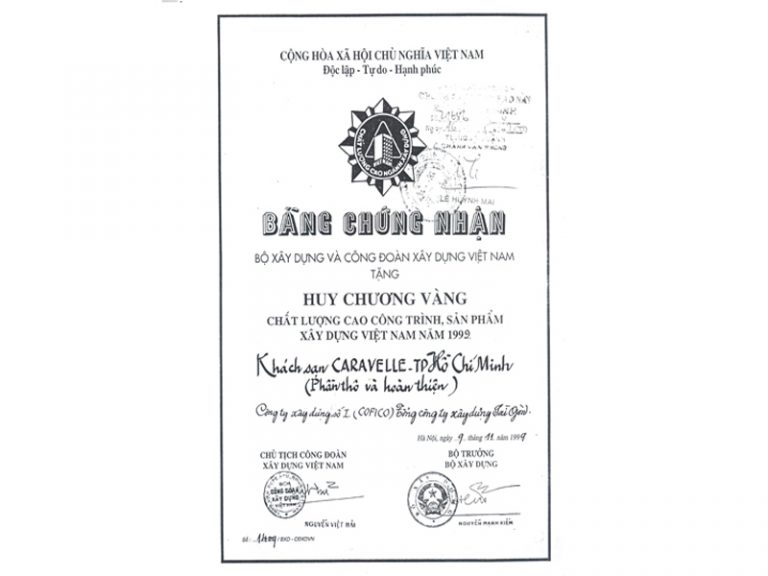 CỘNG HÒA XÃ HỘI CHỦ NGHĨA VIỆT NAM
Độc lập - Tự do - Hạnh phúc
CHẤT LƯỢNG CAO NGÀNH XÂY DỰNG
VIỆT NAM
LÊ HUỲNH MAI
BẰNG CHỨNG NHẬN
BỘ XÂY DỰNG VÀ CÔNG ĐOÀN XÂY DỰNG VIỆT NAM
TẶNG
HUY CHƯƠNG VÀNG
CHẤT LƯỢNG CAO CÔNG TRÌNH, SẢN PHẨM
XÂY DỰNG VIỆT NAM NĂM 1999
Khách sạn CARAVELLE - TP Hồ Chí Minh
(Phần thô và hoàn thiện)
Công ty xây dựng số 1 (COFICO) Tổng công ty xây dựng Sài Gòn.
Hà Nội, ngày 9 tháng 11 năm 1999
CHỦ TỊCH CÔNG ĐOÀN
XÂY DỰNG VIỆT NAM
BỘ TRƯỞNG
BỘ XÂY DỰNG
CÔNG ĐOÀN
XÂY DỰNG
VIỆT NAM
NGUYỄN VIẾT HẢI
NGUYỄN MẠNH KIỂM
/BXD - CĐXDVN